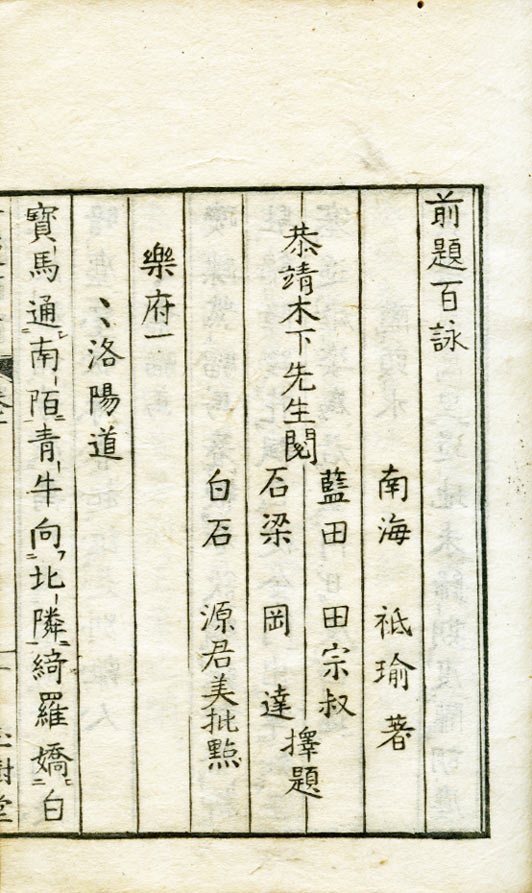 前題百詠
南海 祗瑜 著
恭靖木下先生閱
藍田 田宗叔
石梁 岡 達
擇題
白石 源君美批點
樂府一
洛陽道
寶馬通南陌青牛向北隣綺羅嬌白